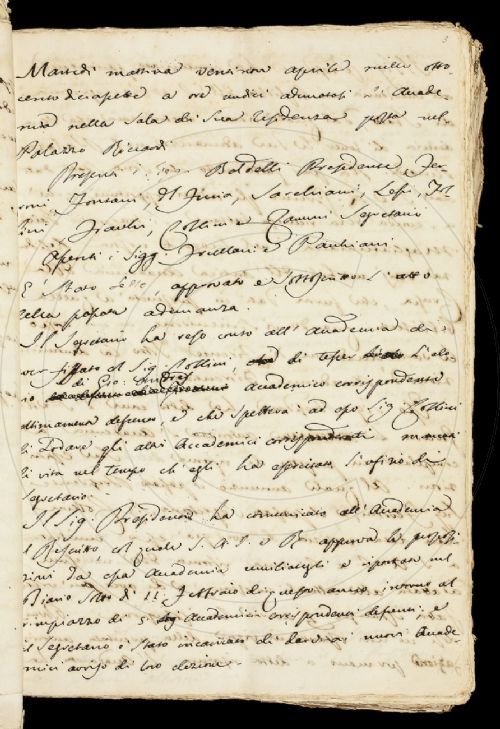 3
Martedì mattina ventinove aprile mille otto-
cento diciasette a ore undici adunatasi l'Acade-
mia nella Sala di Sua Residenza posta nel
Palazzo Riccardi
Presenti i Sigg. Baldelli Presidente, Fer-
roni, Fontani, Del Furia, Sarchiani, Lessi, Fol
lini, Collini e Zannoni Segretario
Assenti i Sigg. Frullani e Pauliani
È stato letto, approvato e sottoscritto l'atto
della passata adunanza.
Il Segretario ha reso conto all'Academia
fissato col Sig. Collini, di tesser l'elo
gio di Gio: Academico corrispondente
ultimamente defunto, e che spettava ad esso Sig. Collini
di lodare gli altri Accademici corrispondenti mancati
di vita nel tempo ch'egli ha esercitato l'ufizio di
Segretario.
Il Sig. Presidente ha comunicato all'Academia
il Rescritto col quale S. A. I. e R. approva le proposi
zioni da essa Academia umiliategli e riportate nel
Diario Sotto di 11 Febbraio di quest'anno intorno al
rimpiazzo di 5 Academici corrispondenti defunti; e
il Segretario è stato incaricato di dare ai nuovi Acade-
mici avviso di loro elezione.